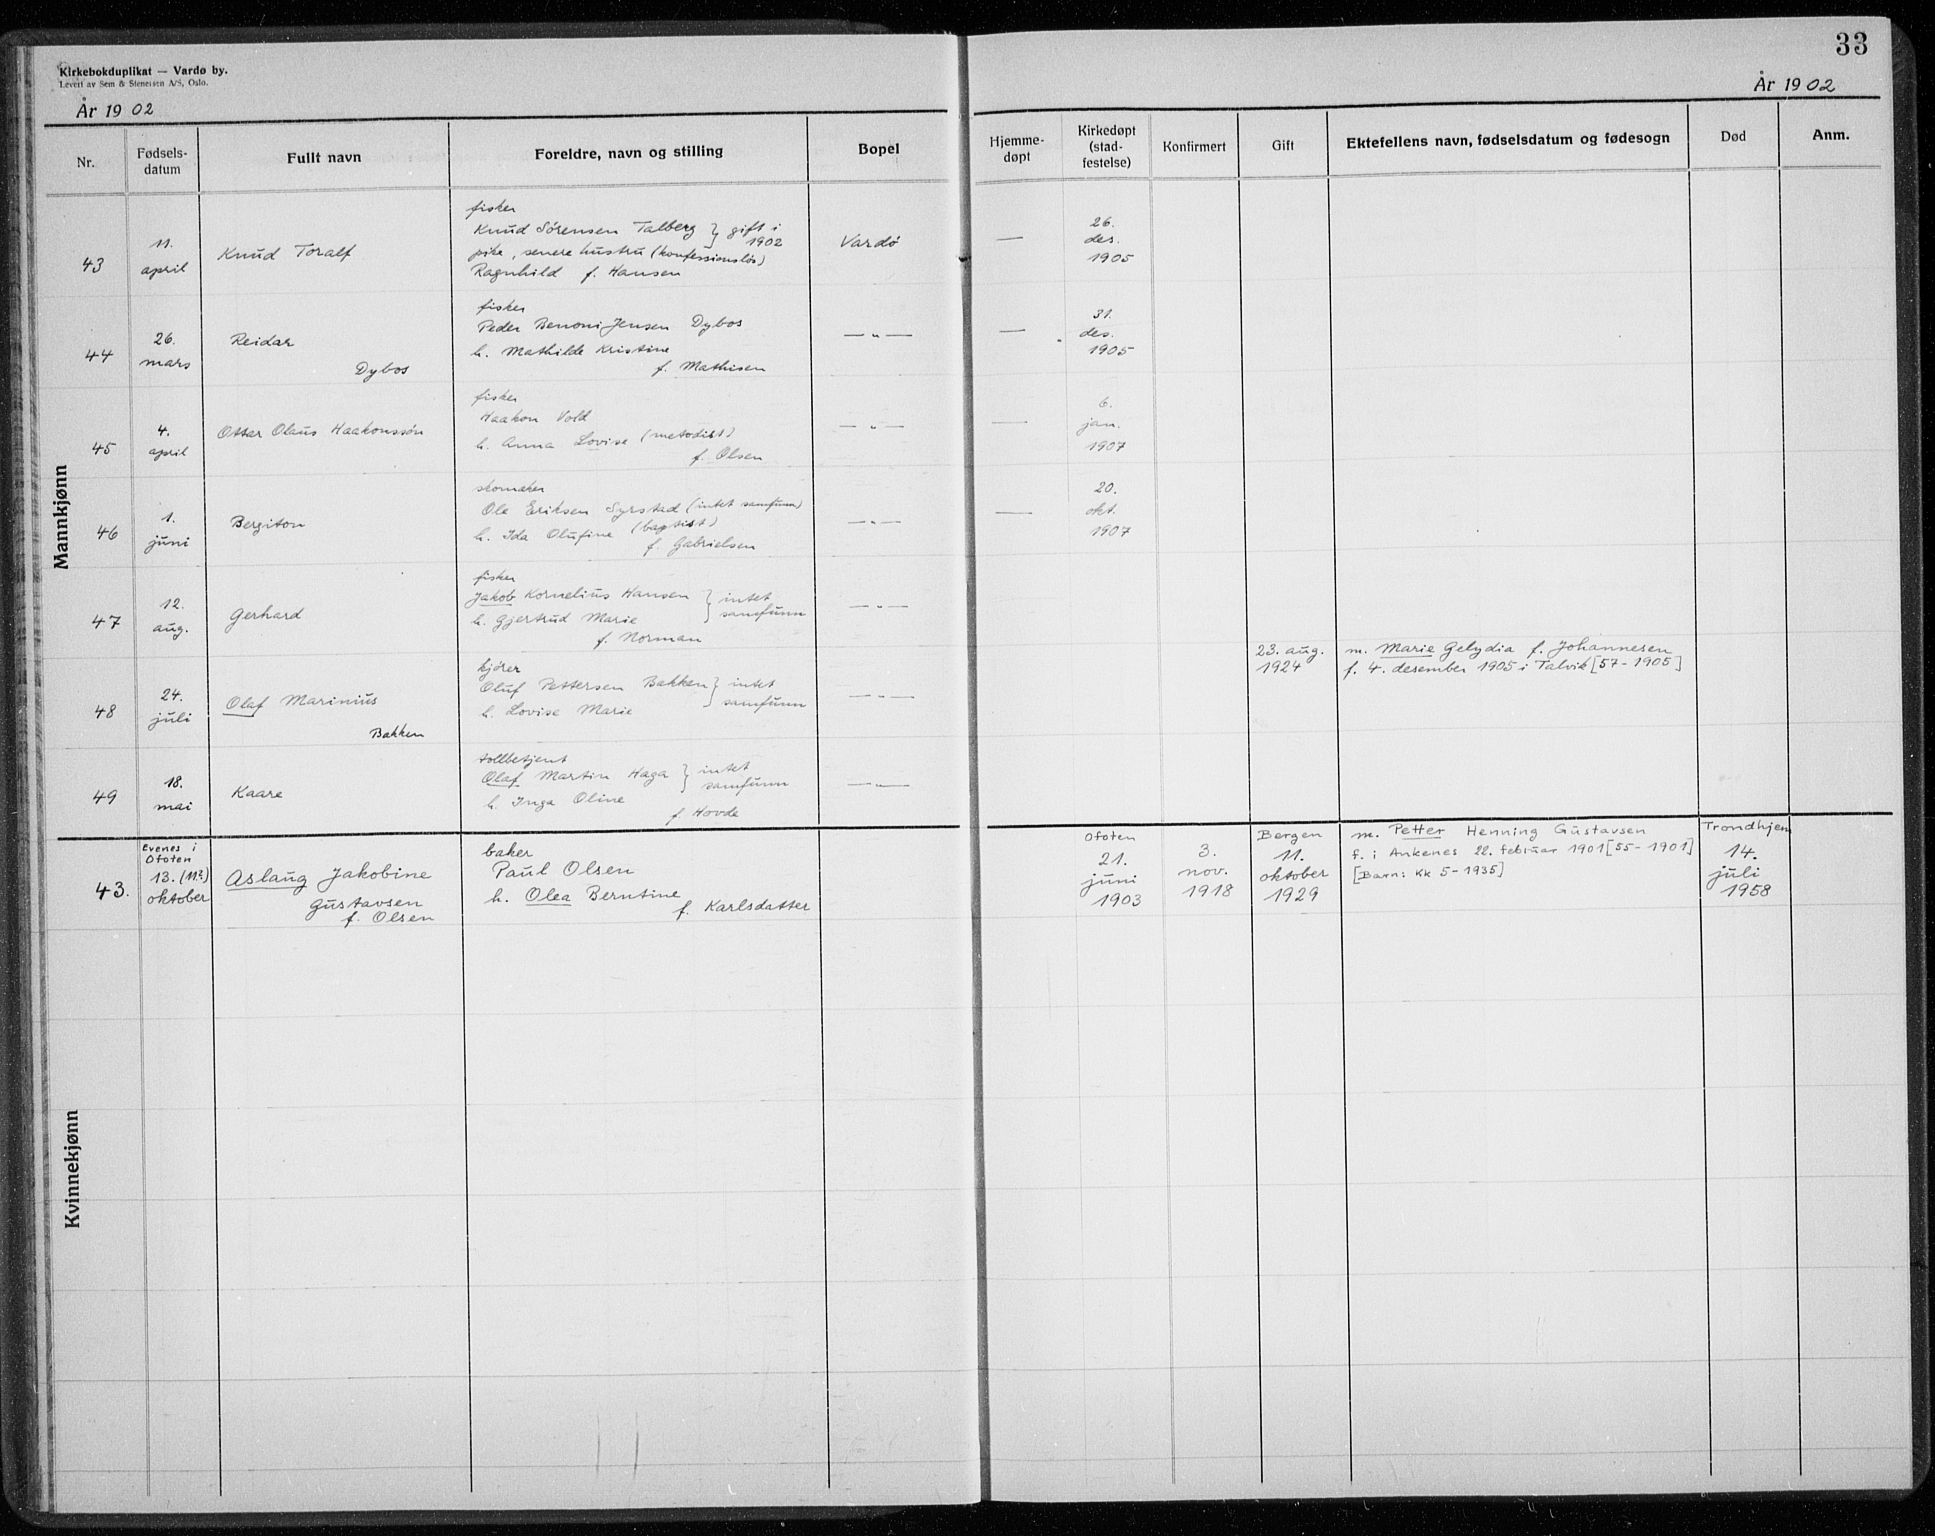 33
Kirkebokduplikat — Vardø by.
Levert av Sem & Stenersen A/S, Oslo.
År 1902
År 1902
Nr.
Fødsels-
datum
Fullt navn
Foreldre, navn og stilling
Bopel
Hjemme-
døpt
Kirkedøpt
(stad-
festelse)
Konfirmert
Gift
Ektefellens navn, fødselsdatum og fødesogn
Død
Anm.
Mannkjønn
43
11.
april
Knud Toralf
fisker
Knud Sørensen Talberg } gift i
1902
pike, senere hustru (konfessionsløs)
Ragnhild f. Hansen
Vardø
—
26.
des.
1905
44
26.
mars
Reidar
Dybos
fisker
Peder Benoni Jensen Dybos
h. Mathilde Kristine
f. Mathisen
— " —
—
31.
des.
1905
45
4.
april
Ottar Olaus Haakonssøn
fisker
Haakon Vold
h. Anna Lovise (metodist)
f. Olsen
— " —
—
6.
jan.
1907
46
1.
juni
Bergiton
skomaker
Ole Eriksen Syrstad (intet samfunn)
h. Ida Olufine (baptist)
f. Gabrielsen
— " —
—
20.
okt.
1907
47
12.
aug.
Gerhard
fisker
Jakob Kornelius Hansen } intet
h. Gjertrud Marie samfunn
f. Norman
— " —
48
24.
juli
Olaf Marinius
Bakken
kjører
Oluf Pettersen Bakken } intet
h. Lovise Marie samfunn
— " —
23. aug.
1924
m. Marie Gelydia f. Johannesen
f. 4. desember 1905 i Talvik [57-1905]
49
18.
mai
Kaare
tollbetjent
Olaf Martin Haga } intet
h. Inga Oline samfunn
f. Hovde
— " —
Kvinnekjønn
43.
Evenes i
Ofoten
13. (11?)
oktober
Aslaug Jakobine
Gustavsen
f. Olsen
baker
Paul Olsen
h. Olea Berntine
f. Karlsdatter
Ofoten
21.
juni
1903
3.
nov.
1918
Bergen
11.
oktober
1929
m. Petter Henning Gustavsen
f. i Ankenes 22. februar 1901 [55-1901]
[Barn: KK 5-1935]
Trondhjem
14.
juli
1958